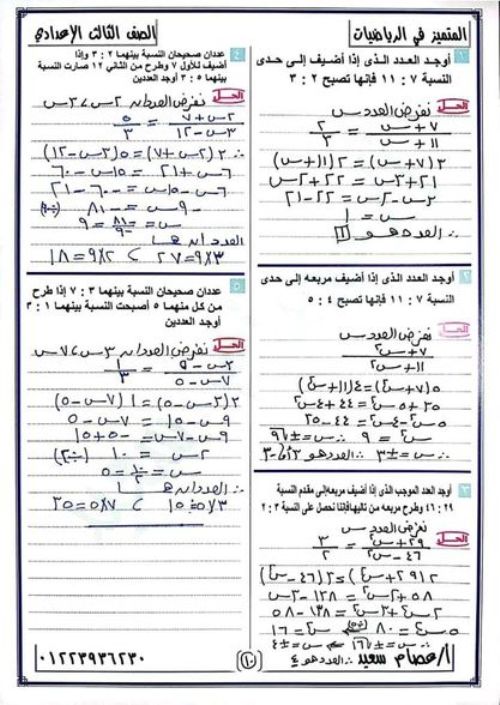 المتميز في الرياضيات
الصف الثالث الإعدادي
١ أوجد العدد الذى إذا أضيف إلى حدى
النسبة ٧ : ١١ فإنها تصبح ٢ : ٣
الحل نفرض العدد س
٧ + س / ١١ + س = ٢ / ٣
٣(٧ + س) = ٢(١١ + س)
٢١ + ٣س = ٢٢ + ٢س
٣س - ٢س = ٢٢ - ٢١
س = ١
∴ العدد هو ١
٢ أوجد العدد الذى إذا أضيف مربعه إلى حدى
النسبة ٧ : ١١ فإنها تصبح ٤ : ٥
الحل نفرض العدد س
٧ + س٢ / ١١ + س٢
٥(٧ + س٢) = ٤(١١ + س٢)
٣٥ + ٥س٢ = ٤٤ + ٤س٢
٥س٢ - ٤س٢ = ٤٤ - ٣٥
س٢ = ٩ ∴ س = ±√٩
∴ س = ±٣ ∴ العدد هو ٣ أو -٣
٣ أوجد العدد الموجب الذى إذا أضيف مربعه إلى مقدم النسبة
٢٩ : ٤٦ وطرح مربعه من تاليها فإننا نحصل على النسبة ٣ : ٢
الحل نفرض العدد س
٢٩ + س٢ / ٤٦ - س٢ = ٣ / ٢
٢(٢٩ + س٢) = ٣(٤٦ - س٢)
٥٨ + ٢س٢ = ١٣٨ - ٣س٢
٢س٢ + ٣س٢ = ١٣٨ - ٥٨
٥س٢ = ٨٠ (÷٥) س٢ = ١٦
س = ±√١٦ س = ±٤
∴ العدد هو ٤
٤ عددان صحيحان النسبة بينهما ٢ : ٣ وإذا
أضيف للأول ٧ وطرح من الثانى ١٢ صارت النسبة
بينهما ٥ : ٣ أوجد العددين
الحل نفرض العددان ٢س ، ٣س
٢س + ٧ / ٣س - ١٢ = ٥ / ٣
∴ ٣(٢س + ٧) = ٥(٣س - ١٢)
٦س + ٢١ = ١٥س - ٦٠
٦س - ١٥س = -٦٠ - ٢١
-٩س = -٨١ (÷-٩)
س = -٨١ / -٩ = ٩
العددان هما
٩×٣ = ٢٧ ، ٩×٢ = ١٨
٥ عددان صحيحان النسبة بينهما ٣ : ٧ إذا طرح
من كل منهما ٥ أصبحت النسبة بينهما ١ : ٣
أوجد العددين
الحل نفرض العددان ٣س ، ٧س
٣س - ٥ / ٧س - ٥ = ١ / ٣
٣(٣س - ٥) = ١(٧س - ٥)
٩س - ١٥ = ٧س - ٥
٩س - ٧س = -٥ + ١٥
٢س = ١٠ (÷٢)
س = ١٠ / ٢ = ٥
∴ العددان هما
٣×٥ = ١٥ ، ٧×٥ = ٣٥
أ/عصام سعيد
(١٠)
٠١٢٢٣٩٣٦٢٣٠